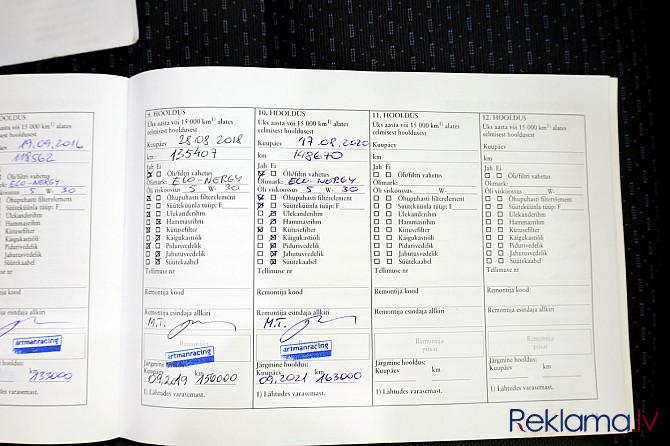 aasta või 15 000 km¹⁾ alates
elmisest hooldusest
19.09.2016
118562
Õli/filtri vahetus
ECO-NERGY
5 W- 30
artmanracing
133000
9. HOOLDUS
Üks aasta või 15 000 km¹⁾ alates
eelmisest hooldusest
Kuupäev 28.08.2018
km 135407
Jah Ei
Õli/filtri vahetus
Õlimark: ECO-NERGY
Õli viskoossus 5 W- 30
Õhupuhasti filterelement
Süüteküünla tüüp: F
Ülekanderihm
Hammasrihm
Kütusefilter
Käigukastiõli
Pidurivedelik
Jahutusvedelik
Süütekaabel
Tellimuse nr
Remontija kood
Remontija esindaja allkiri
M.T.
artmanracing
Järgmine hooldus:
Kuupäev km
09.2019 150000
1) Lähtudes varasemast.
10. HOOLDUS
Üks aasta või 15 000 km¹⁾ alates
eelmisest hooldusest
Kuupäev 17.08.2020
km 148670
Jah Ei
Õli/filtri vahetus
Õlimark: ECO-NERGY
Õli viskoossus 5 W- 30
Õhupuhasti filterelement
Süüteküünla tüüp: F
Ülekanderihm
Hammasrihm
Kütusefilter
Käigukastiõli
Pidurivedelik
Jahutusvedelik
Süütekaabel
Tellimuse nr
Remontija kood
Remontija esindaja allkiri
M.T.
artmanracing
Järgmine hooldus:
Kuupäev km
09.2021 163000
1) Lähtudes varasemast.
11. HOOLDUS
Üks aasta või 15 000 km¹⁾ alates
eelmisest hooldusest
Kuupäev
km
Jah Ei
Õli/filtri vahetus
Õlimark:
Õli viskoossus W-
Õhupuhasti filterelement
Süüteküünla tüüp: F
Ülekanderihm
Hammasrihm
Kütusefilter
Käigukastiõli
Pidurivedelik
Jahutusvedelik
Süütekaabel
Tellimuse nr
Remontija kood
Remontija esindaja allkiri
Remontija
pitsat
Järgmine hooldus:
Kuupäev km
1) Lähtudes varasemast.
12. HOOLDUS
Üks aasta või 15 000 km¹⁾ alates
eelmisest hooldusest
Kuupäev
km
Jah Ei
Õli/filtri vahetus
Õlimark:
Õli viskoossus W-
Õhupuhasti filterelement
Süüteküünla tüüp: F
Ülekanderihm
Hammasrihm
Kütusefilter
Käigukastiõli
Pidurivedelik
Jahutusvedelik
Süütekaabel
Tellimuse nr
Remontija kood
Remontija esindaja allkiri
Remontija
pitsat
Järgmine hooldus:
Kuupäev km
1) Lähtudes varasemast.
Reklama.lv